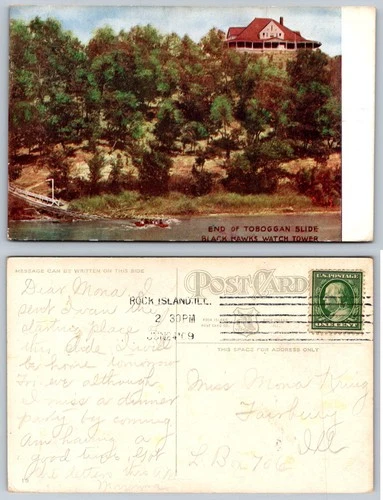 END OF TOBOGGAN SLIDE
BLACK HAWK'S WATCH TOWER
MESSAGE CAN BE WRITTEN ON THIS SIDE
POST CARD
THIS SPACE FOR ADDRESS ONLY
U.S. POSTAGE
ONE CENT
ROCK ISLAND, ILL.
2 30PM
Dear Mona I
sent Iwan the
starting place
this slide. I will
be home tomorrow
eve although
I miss a dinner
party by coming
Am having a
good time. Got
the letters this A.M.
Miss Mona King
Fairbury
Ill
L Box 766